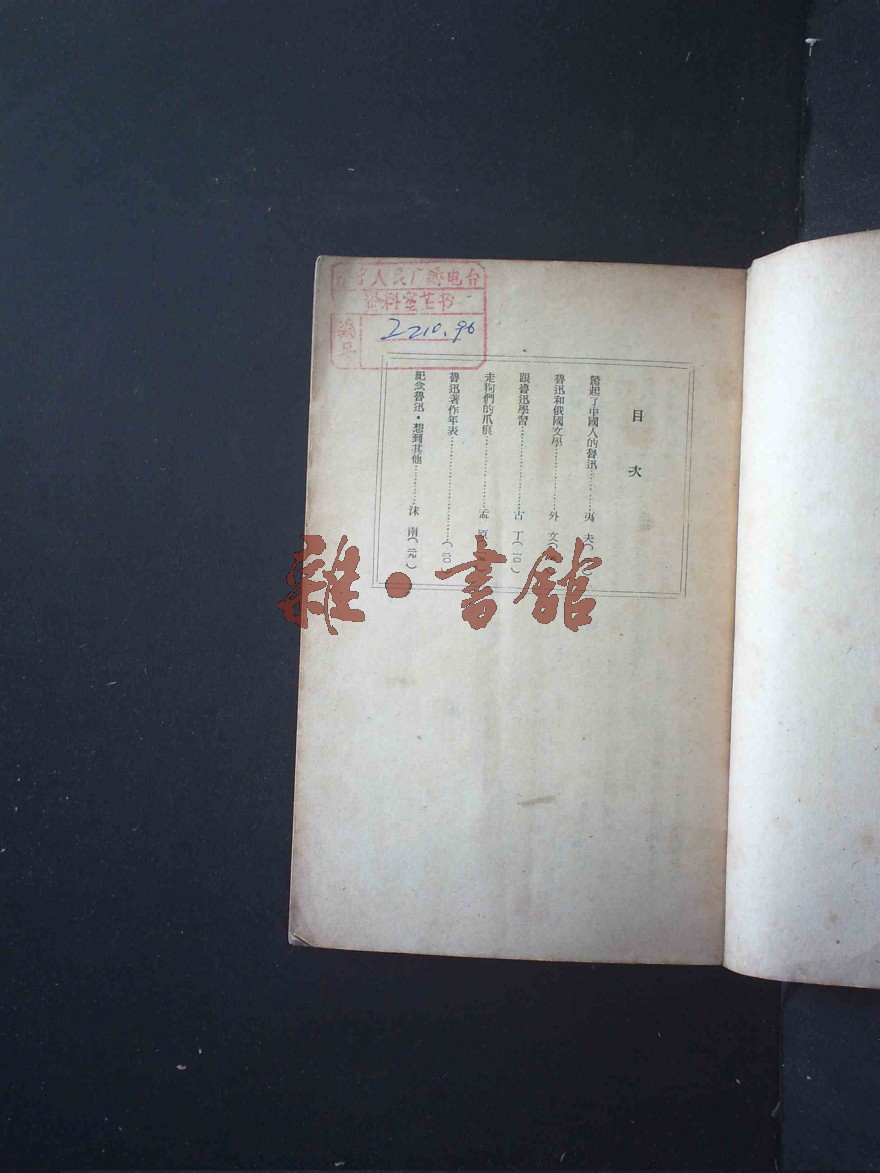 人民广播电台
资料室藏书
编号
2210.96
目次
驚起了中國人的魯迅…………夷夫(
魯迅和俄國文學…………外文(
跟魯迅學習…………古丁(一〇)
走狗們的爪痕…………孟原
魯迅著作年表…………(二〇
紀念魯迅·想到其他…………沫南(二元)
雜·書館